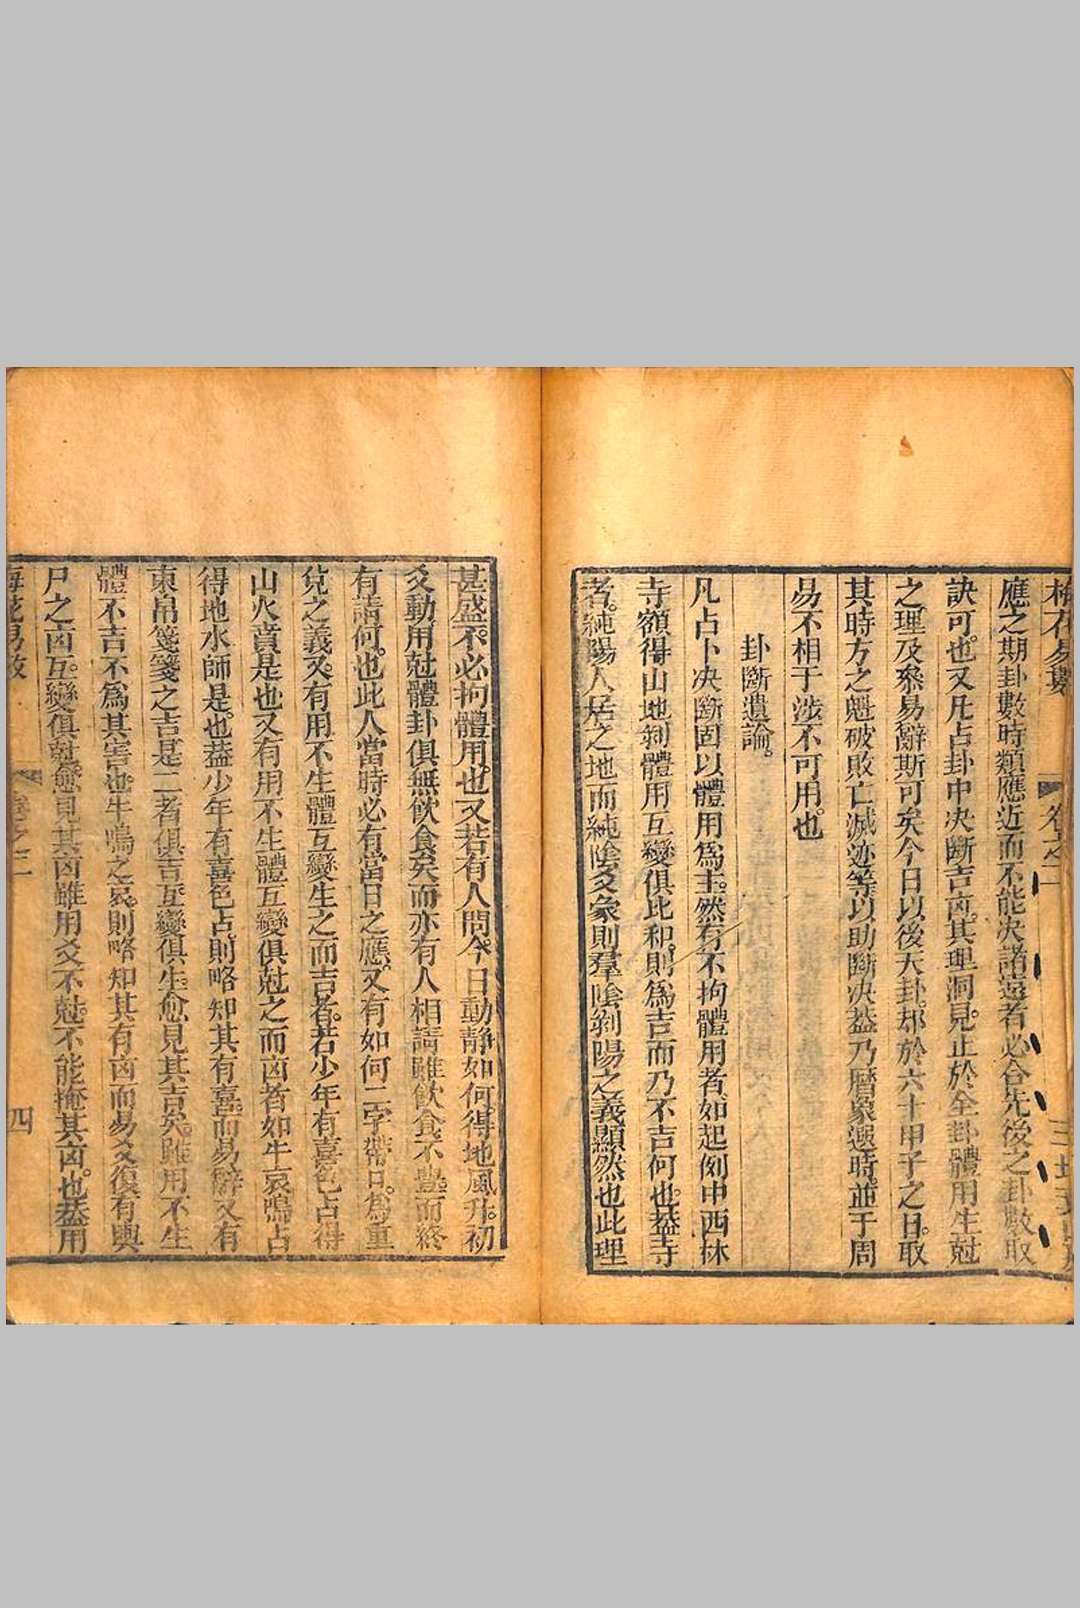 梅花易數 卷之二
應之期卦數時類應近而不能决諸遠者必合先後之卦數取
訣可也又凡占卦中决斷吉凶其理洞見止於全卦體用生尅
之理及叅易辭斯可矣今日以後天卦却於六十甲子之日取
其時方之魁破敗亡滅迹等以助斷决葢乃曆象選時並于周
易不相干涉不可用也
卦斷遺論
凡占卜决斷固以體用爲主然有不拘體用者如起例中西林
寺額得山地剝體用互變俱比和則爲吉而乃不吉何也葢寺
者純陽人居之地而純陰爻象則羣陰剝陽之義顯然也此理
甚盛不必拘體用也又若有人問今日動靜如何得地風升初
爻動用尅體卦俱無飲食矣而亦有人相請雖飲食不豊而終
有請何也此人當時必有當日之應又有如何二字帶口爲重
兌之義又有用不生體互變生之而吉者若少年有喜色占得
山火賁是也又有用不生體互變俱尅之而凶者如牛哀鳴占
得地水師是也葢少年有喜色占則略知其有喜而易辭又有
束帛箋箋之吉是二者俱吉互變俱生愈見其吉矣雖用不生
體不吉不爲其害也牛鳴之哀則略知其有凶而易爻復有輿
尸之凶互變俱尅愈見其凶雖用爻不尅不能掩其凶也葢用
梅花易數 卷之二 四